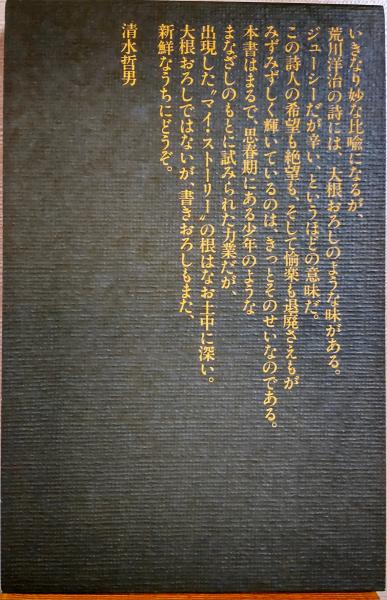 いきなり妙な比喩になるが、
荒川洋治の詩には、大根おろしのような味がある。
ジューシーだが辛い、というほどの意味だ。
この詩人の希望も絶望も、そして愉楽も退廃さえもが
みずみずしく輝いているのは、きっとそのせいなのである。
本書はまるで、思春期にある少年のような
まなざしのもとに試みられた力業だが、
出現した〝マイ・ストーリー〟の根はなお土中に深い。
大根おろしではないが、書きおろしもまた、
新鮮なうちにどうぞ。
清水哲男